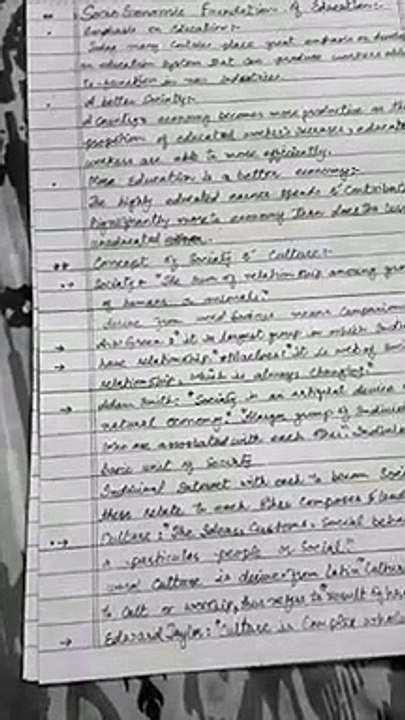 Socio Economic Foundation of Education:-
Emphasis on Education:-
Today many countries place great emphasis on develop
an education system that can produce workers able
to function in new industries.
A better Society:-
A Country economy becomes more productive as the
proportion of educated workers increases, educate
workers are able to more efficiently.
More Education is a better economy:-
The highly educated earner spends & Contribut
significantly more to economy than does the less
uneducated
Concept of Society & Culture:-
Society:- "The sum of relationship among gro
of humans or animals."
derive from word Socius means Companion
A.W Green: "it is largest group in which Indi
have relationship." Maclver: "it is web of Soci
relationship, which is always changing."
Adam Smith: "Society is an artificial device
natural economy." "Larger group of Individ
who are associated with each other." Individu
basic unit of Society
Individual Interact with each to become Soci
these relate to each other Composes & lead
Culture: "The Ideas, Customs, Social beha
a particular people or Social."
word Culture is derive from Latin "Cultur
to Cult or worship, thus refers to "result of
Edward Taylor: "Culture is Complex whole